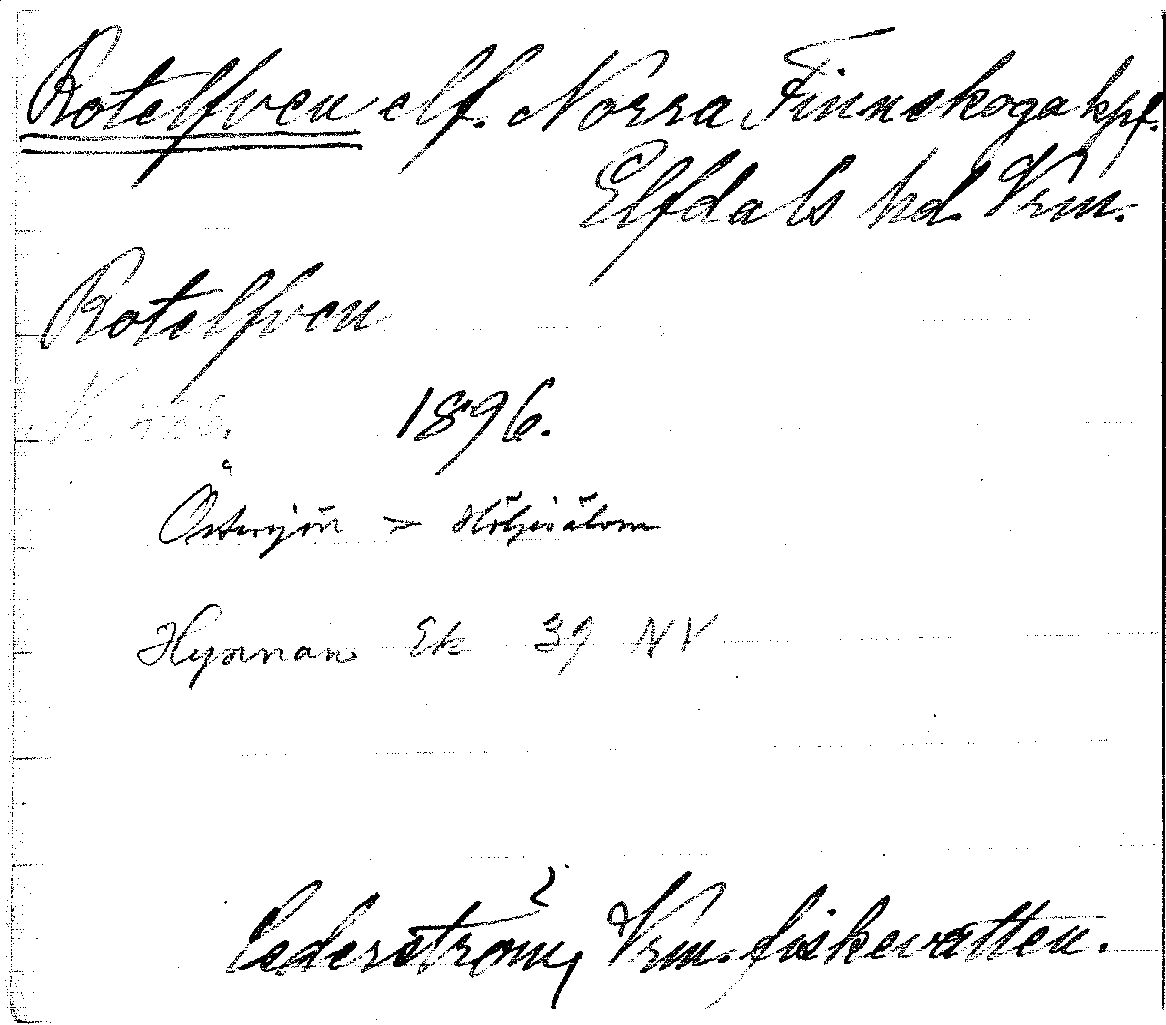 Rotelfven elf. Norra Finnskoga kpf.
Elfdals hd. Vrm.
Rotelfven
1896.
Östersjön > Höljesälven
Hynnan Ek 39 NV
Cederström, Vrm. fiskevatten.